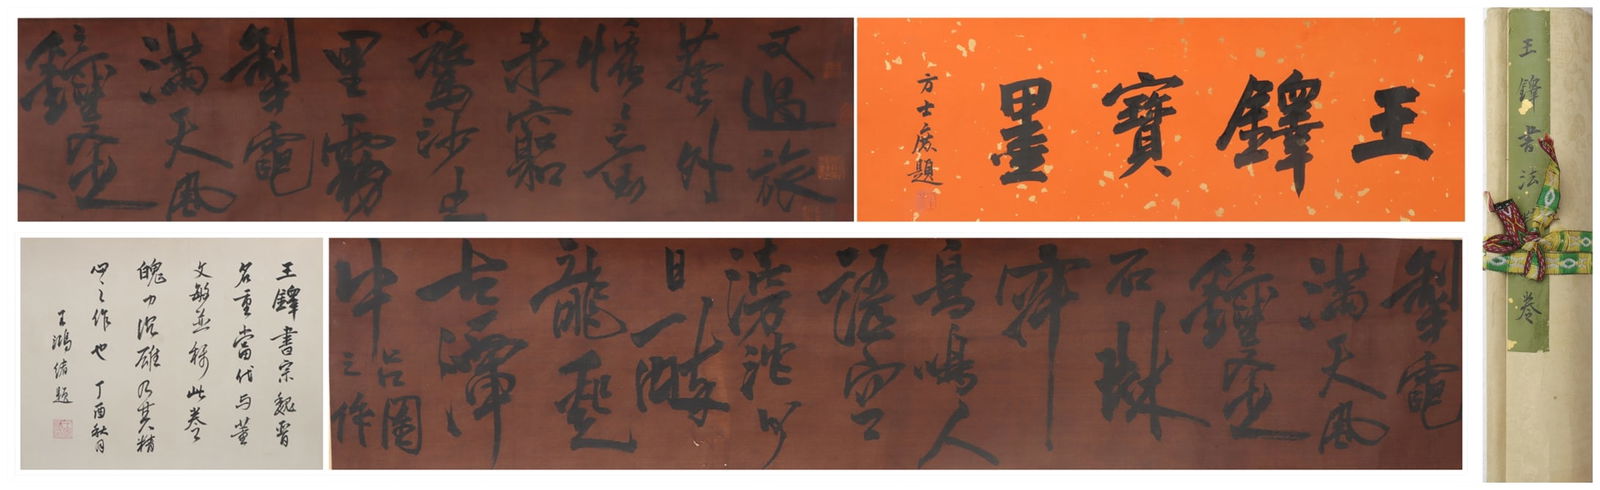 王鐸寶墨
方士庶題
又過旅
菴外
未窮
驚沙上
里霧
掣電
滿天風
鐘
掣電
滿天風
鐘
石
鳥鳴人
語空
滂沱少
目一時
龍起
古潭
中
之作
王鐸書宗魏晉
名重當代與董
文敏並稱此卷
魄力沉雄乃其精
心之作也 丁酉秋月
王鴻緒題
王鐸書法
卷